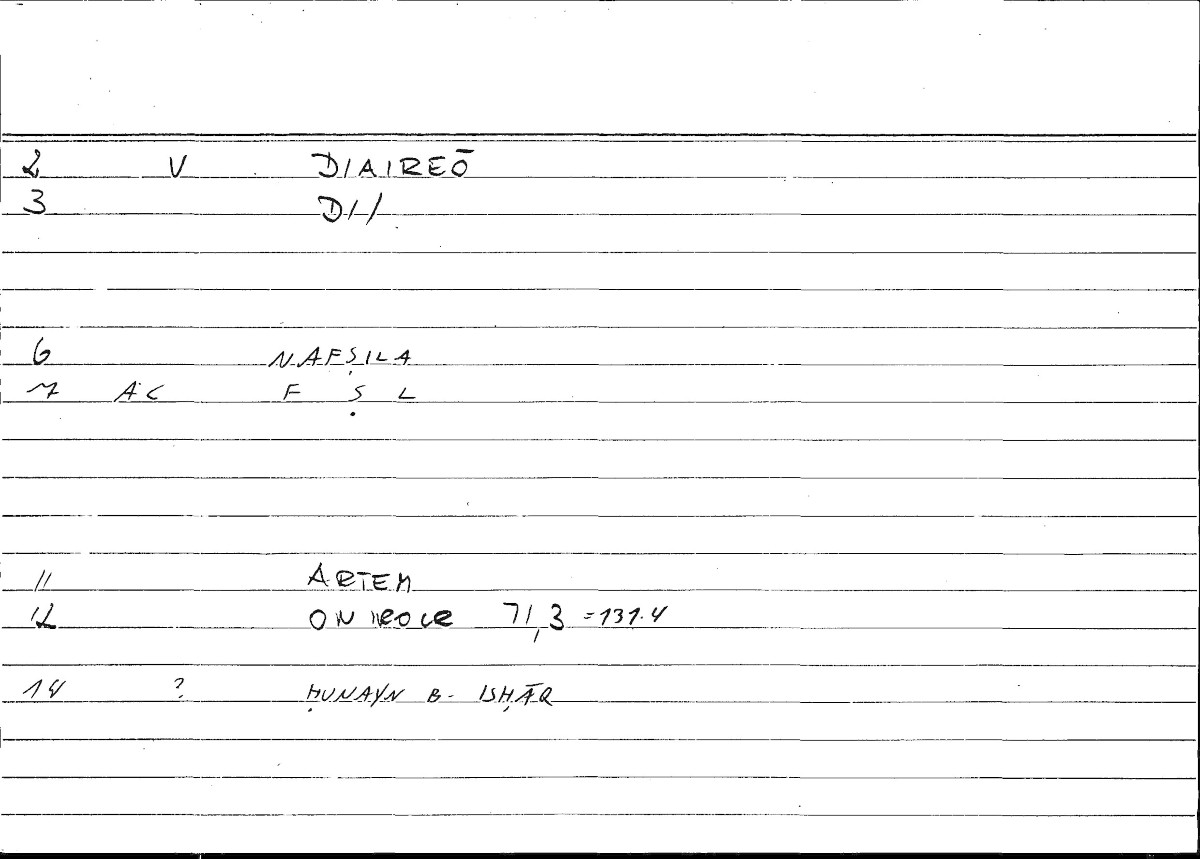 2 V DIAIREŌ
3 DI/
6 NAFṢILA
7 AC F Ṣ L
11 ARTEM
12 ONIROCR 71,3 =131.4
14 ? ḤUNAYN B. ISḤĀQ